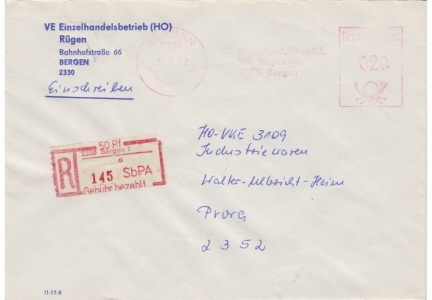 VE Einzelhandelsbetrieb (HO)
Rügen
Bahnhofstraße 66
BERGEN
2330
Einschreiben
BERGEN
2330 Bergen
Deutsche Post
020
50 Pf
2330 Bergen 1
a
R
145 SbPA
Gebühr bezahlt
HO-VKE 3109
Industriewaren
Walter-Ulbricht-Heim
Prora
2352
II-17-8